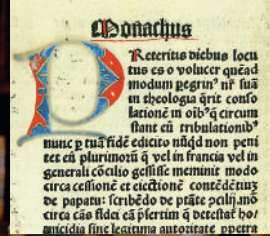 Monachus
PReteritis diebus locu
tus es o volucer quēad
modum pegrin⁹ nr̄ suā
in theologia q̄rit conso
lationē in oīb⁹ q̄ circum
stant eū tribulationib⁹
nunc p tuā fidē edicito nūqd non peni
tet eū plurimorū q̄ vel in francia vel in
generali cōcilio gessisse meminit modo
circa cessionē et eiectionē contēdētiuʒ
de papatu: scribēdo de ptāte ꝯcilij.mō
circa cās fidei eā p̄sertim q̄ detestat̄ ho
micidia sine legitima autoritate ppetra